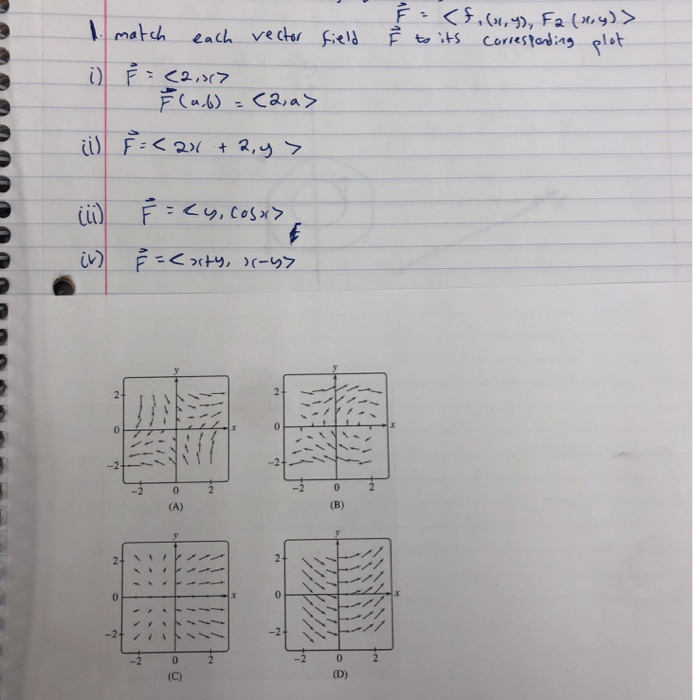 F⃗ = <f₁(x,y), F₂(x,y)>
1. match each vector field F⃗ to its corresponding plot
i) F⃗ = <2,x>
F⃗(a,b) = <2,a>
(ii) F⃗ = <2x + 2, y>
(iii) F⃗ = <y, cosx>
(iv) F⃗ = <x+y, x-y>
y y
2 2
0 x 0 x
-2 -2
-2 0 2 -2 0 2
(A) (B)
y y
2 2
0 x 0 x
-2 -2
-2 0 2 -2 0 2
(C) (D)